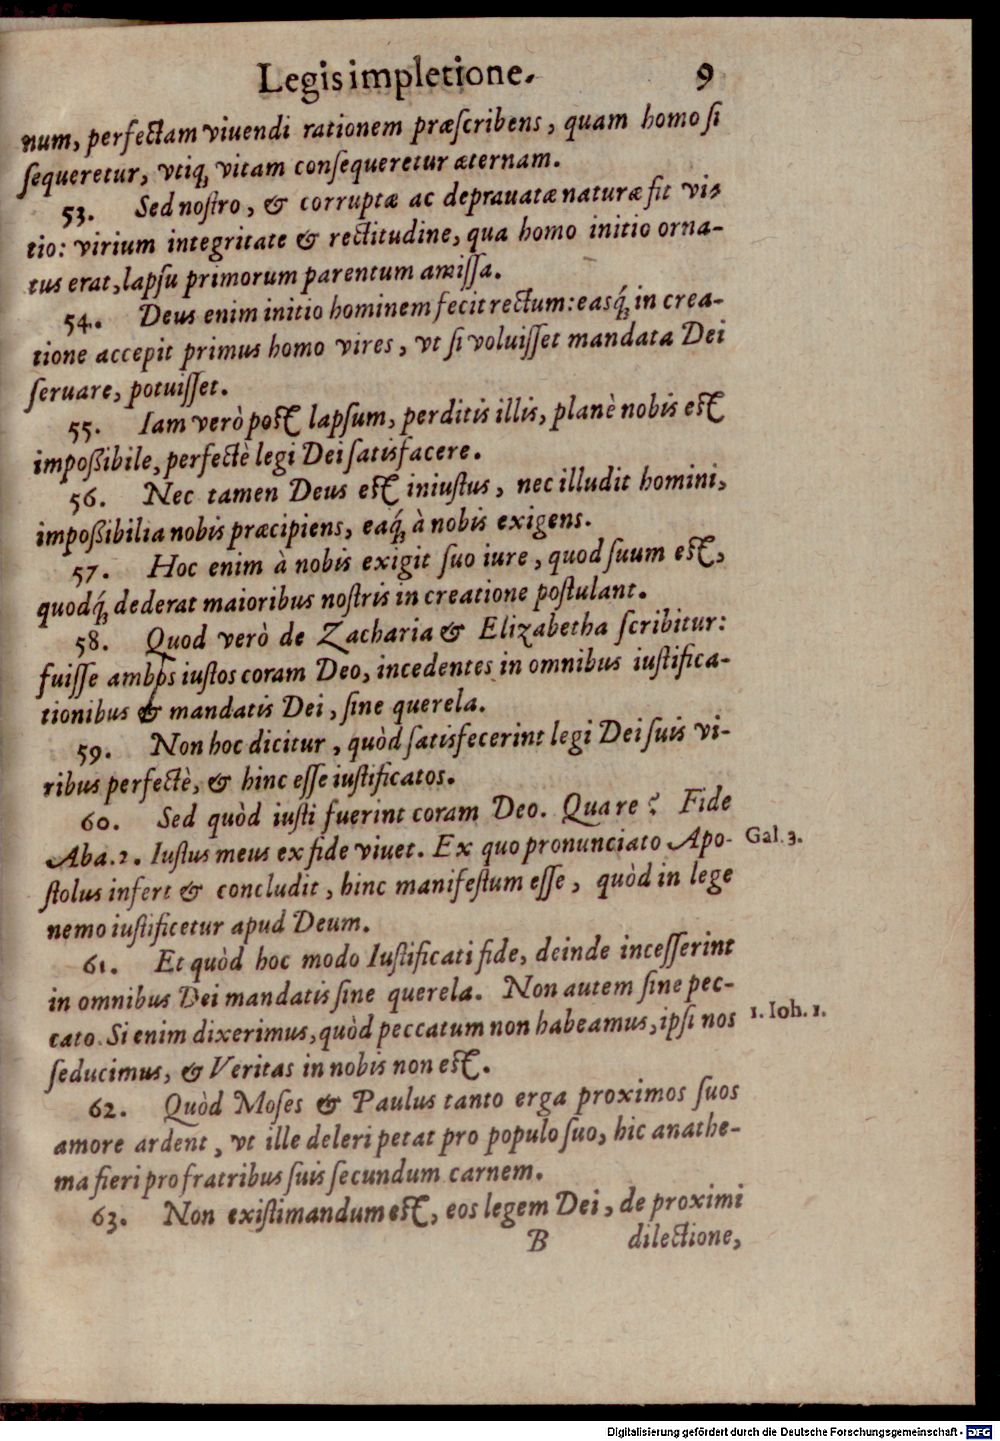 Legis impletione. 9
num, perfectam viuendi rationem præscribens, quam homo si
sequeretur, vtiq́; vitam consequeretur æternam.
53. Sed nostro, & corruptæ ac deprauatæ naturæ fit vi-
tio: virium integritate & rectitudine, qua homo initio orna-
tus erat, lapsu primorum parentum amissa.
54. Deus enim initio hominem fecit rectum: easq́; in crea-
tione accepit primus homo vires, vt si voluisset mandata Dei
seruare, potuisset.
55. Iam verò post lapsum, perditis illis, planè nobis est
impoßibile, perfectè legi Dei satisfacere.
56. Nec tamen Deus est iniustus, nec illudit homini,
impoßibilia nobis præcipiens, eaq́; à nobis exigens.
57. Hoc enim à nobis exigit suo iure, quod suum est,
quodq́; dederat maioribus nostris in creatione postulant.
58. Quod verò de Zacharia & Elizabetha scribitur:
fuisse ambos iustos coram Deo, incedentes in omnibus iustifica-
tionibus & mandatis Dei, sine querela.
59. Non hoc dicitur, quòd satisfecerint legi Dei suis vi-
ribus perfectè, & hinc esse iustificatos.
60. Sed quòd iusti fuerint coram Deo. Quare? Fide
Aba. 2. Iustus meus ex fide viuet. Ex quo pronunciato Apo- Gal. 3.
stolus infert & concludit, hinc manifestum esse, quòd in lege
nemo iustificetur apud Deum.
61. Et quòd hoc modo Iustificati fide, deinde incesserint
in omnibus Dei mandatis sine querela. Non autem sine pec-
cato. Si enim dixerimus, quòd peccatum non habeamus, ipsi nos 1. Ioh. 1.
seducimus, & Veritas in nobis non est.
62. Quòd Moses & Paulus tanto erga proximos suos
amore ardent, vt ille deleri petat pro populo suo, hic anathe-
ma fieri pro fratribus suis secundum carnem.
63. Non existimandum est, eos legem Dei, de proximi
B dilectione,
Digitalisierung gefördert durch die Deutsche Forschungsgemeinschaft - DFG